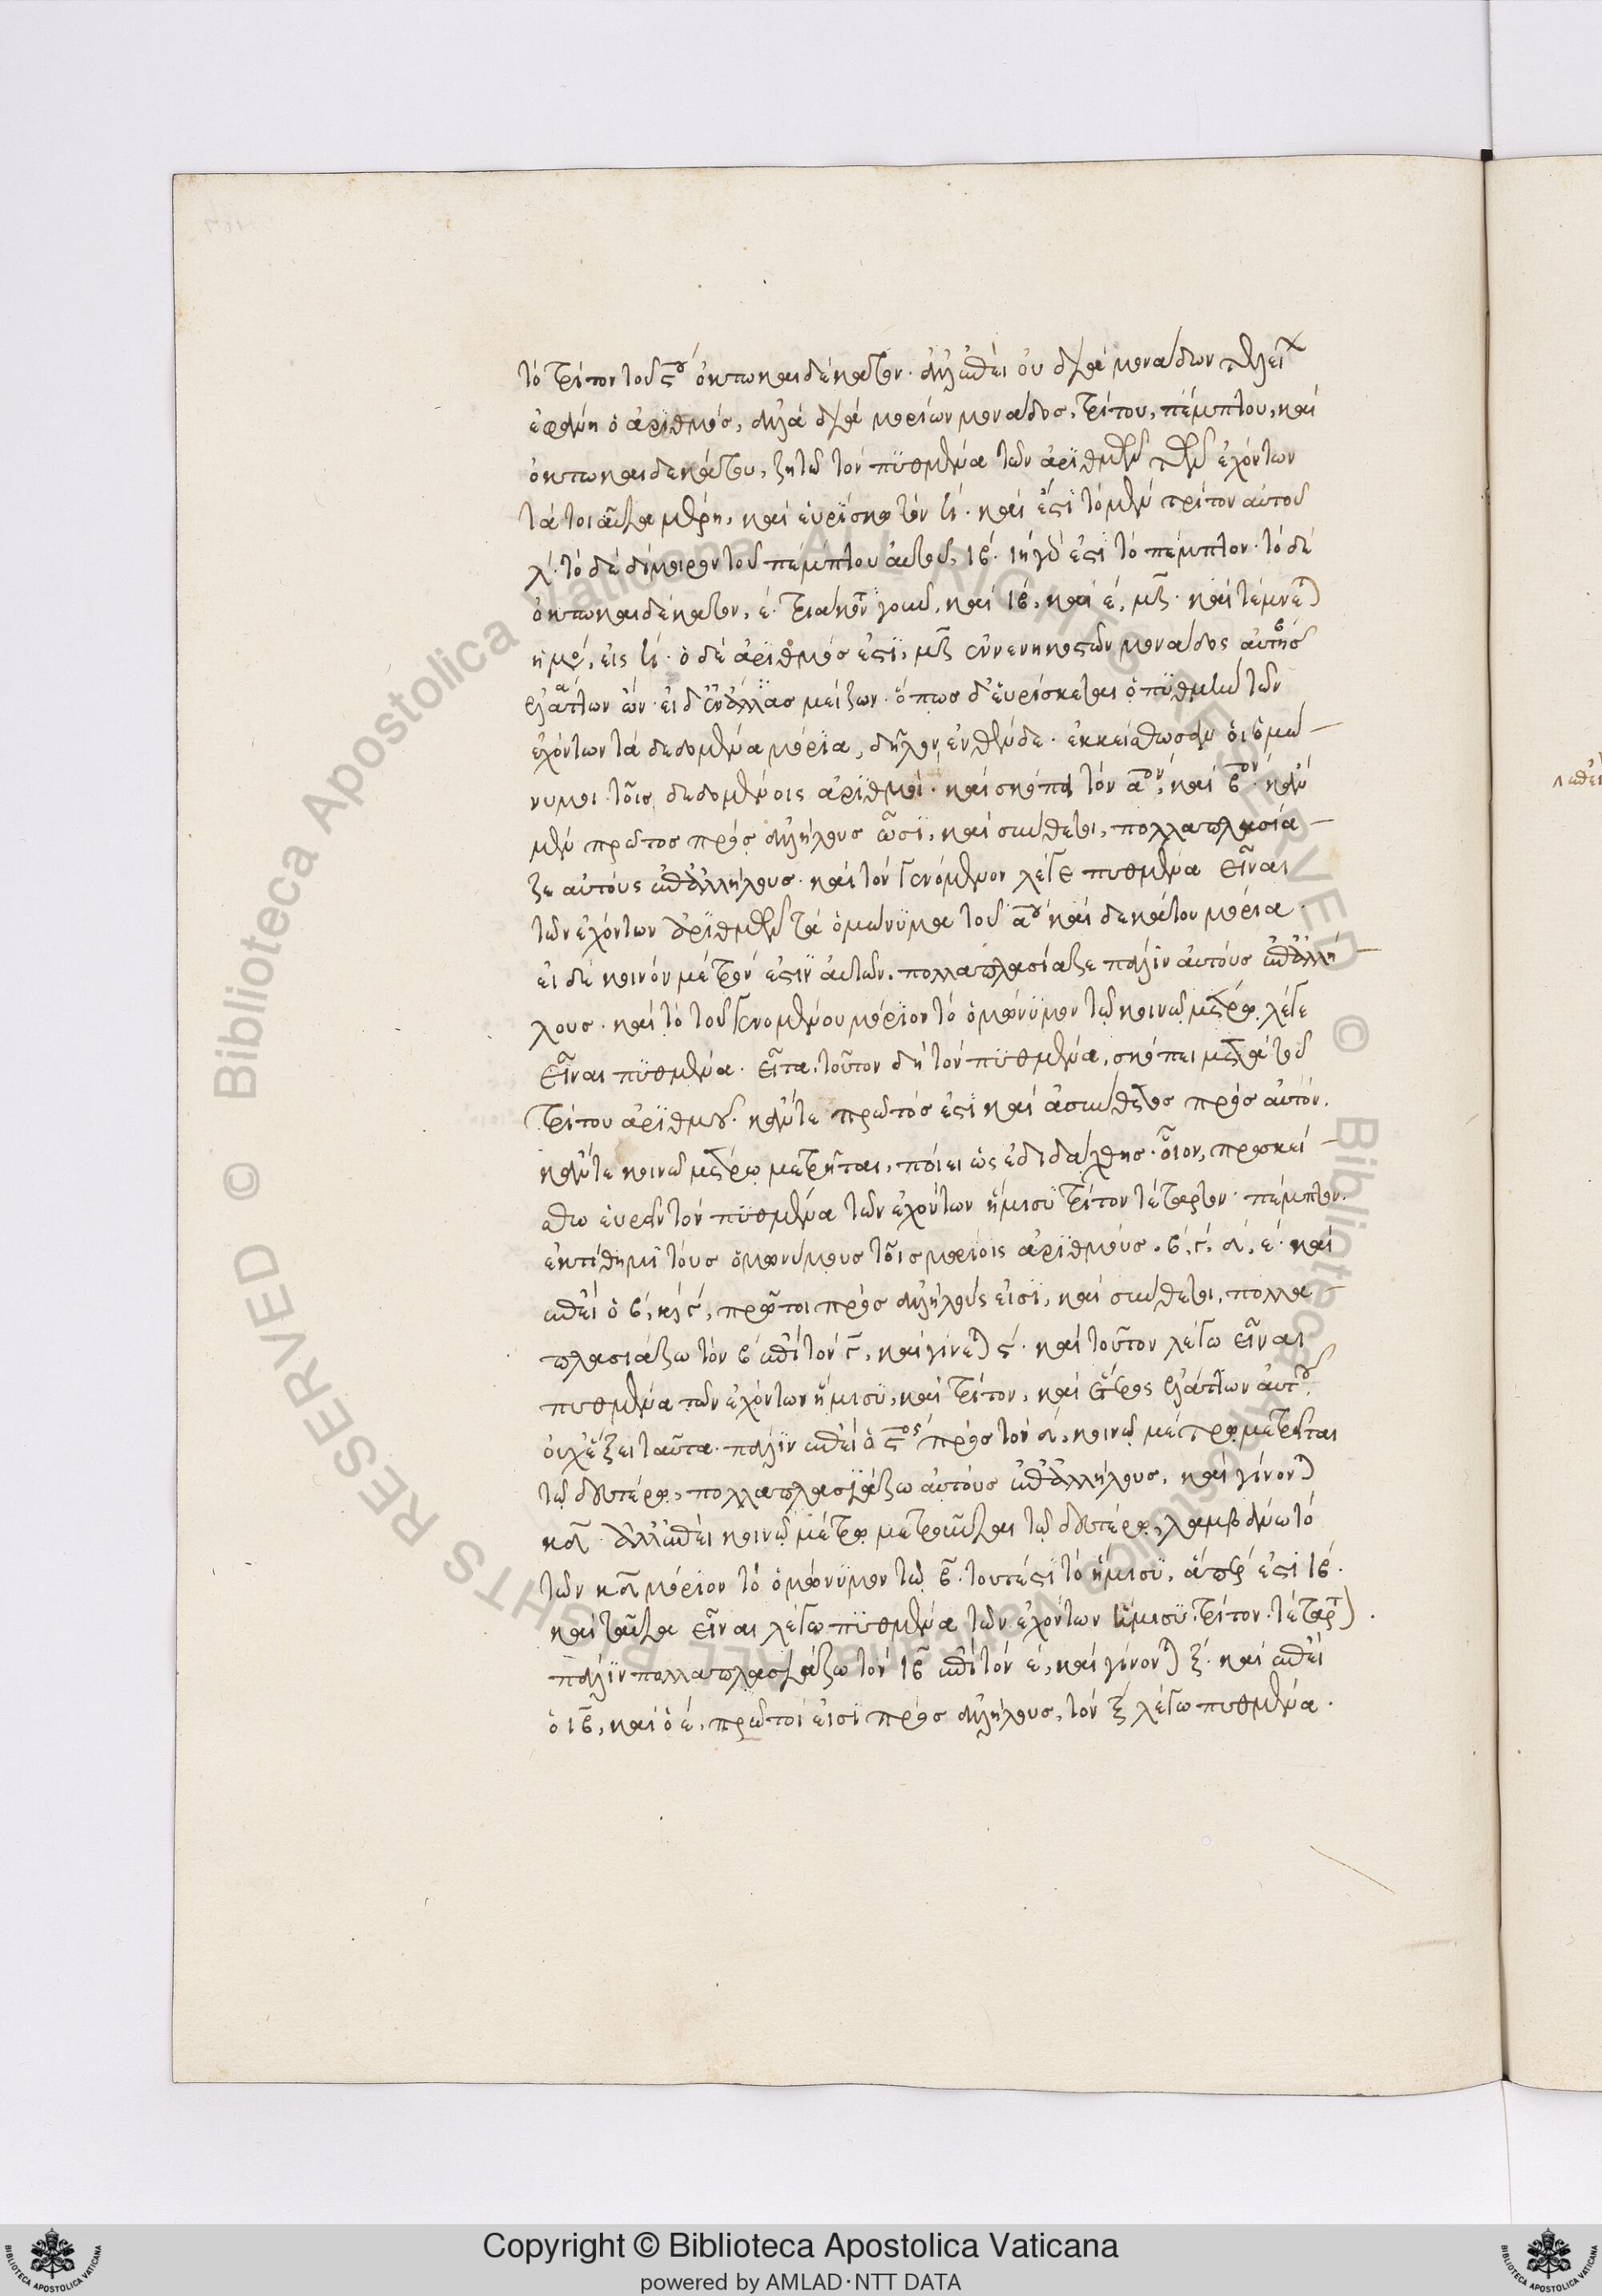 τὸ τρίτον τοῦ ϛου ὀκτωκαιδέκατον. ἀλλ' ἐπεὶ οὐ διὰ μονάδων
ἐφάνη ὁ ἀριθμός, ἀλλὰ διὰ μορίων μονάδος, τρίτου, πέμπτου, καὶ
ὀκτωκαιδεκάτου, ζητῶ τὸν πυθμένα τῶν ἀριθμῶν τῶν ἐχόντων
τὰ τοιαῦτα μέρη, καὶ εὑρίσκω τὸν ϟ. καὶ ἔστι τὸ μὲν τρίτον αὐτοῦ
λ. τὸ δὲ δίμοιρον τοῦ πέμπτου αὐτοῦ, ιβ. ιη γάρ ἐστι τὸ πέμπτον. τὸ δὲ
ὀκτωκαιδέκατον, ε. τριάκοντ γοῦν, καὶ ιβ, καὶ ε, μζ. καὶ τέμνετ
ἡ μο, εἰς ϟ. ὁ δὲ ἀριθμός ἐστι, μζ ἐνενηκοστῶν μονάδος αὐτῆς
ἐλάττων ὤν. εἰ δ' ἐν ἄλλας μείζων. ὅπως δ' εὑρίσκεται ὁ πυθμὴν τῶν
ἐχόντων τὰ δεδομένα μόρια, δῆλον ἐνθένδε. ἐκκείσθωσαν οἱ ὁμώ-
νυμοι τοῖς δεδομένοις ἀριθμοί. καὶ σκόπει τὸν αον, καὶ βον. κἂν
μὲν πρῶτος πρὸς ἀλλήλους ὦσι, καὶ σύνθετοι, πολλαπλασία-
ζε αὐτοὺς ἐπ' ἀλλήλους. καὶ τὸν γενόμενον λέγε πυθμένα εἶναι
τῶν ἐχόντων ἀριθμῶν τὰ ὁμώνυμα τοῦ αου καὶ δεκάτου μόρια.
εἰ δὲ κοινὸν μέτρον ἐστὶν αὐτῶν, πολλαπλασίαζε πάλιν αὐτοὺς ἐπ' ἀλλή-
λους. καὶ τὸ τοῦ γενομένου μόριον τὸ ὁμώνυμον τῷ κοινῷ μέτρῳ, λέγε
εἶναι πυθμένα. εἶτα, τοῦτον δὴ τὸν πυθμένα, σκόπει μετὰ τοῦ
τρίτου ἀριθμοῦ. κἄντε πρῶτός ἐστι καὶ ἀσύνθετος πρὸς αὐτόν.
κἄντε κοινῷ μέτρῳ μετρῆται, ποίει ὡς ἐδιδάχθης. οἷον, προσκεί-
σθω εὑρεῖν τὸν πυθμένα τῶν ἐχόντων ἥμισυ τρίτον τέταρτον πέμπτον.
ἐκτίθημι τοὺς ὁμωνύμους τοῖς μορίοις ἀριθμούς. β, γ, δ, ε. καὶ
ἐπεὶ ὁ β, κὶ γ, πρῶτοι πρὸς ἀλλήλους εἰσί, καὶ σύνθετοι, πολλα-
πλασιάζω τὸν β ἐπὶ τὸν γ, καὶ γίνετ ϛ. καὶ τοῦτον λέγω εἶναι
πυθμένα τῶν ἐχόντων ἥμισυ, καὶ τρίτον, καὶ ἕτερος ἐλάττων αὐτοῦ
οὐχ ἕξει ταῦτα. πάλιν ἐπεὶ ὁ ϛος πρὸς τὸν δ, κοινῷ μέτρῳ μετρεῖται
τῷ δευτέρῳ, πολλαπλασιάζω αὐτοὺς ἐπ' ἀλλήλους, καὶ γίνοντ
κδ. ἀλλ' ἐπεὶ κοινῷ μέτρῳ μετροῦνται τῷ δευτέρῳ, λαμβάνω τὸ
τῶν κδ μόριον τὸ ὁμώνυμον τῷ β. τουτέστι τὸ ἥμισυ, ἅπερ ἐστὶ ιβ.
καὶ ταῦτα εἶναι λέγω πυθμένα τῶν ἐχόντων ἥμισυ. τρίτον. τέταρτ.
πάλιν πολλαπλασιάζω τὸν ιβ ἐπὶ τὸν ε, καὶ γίνοντ ξ. καὶ ἐπεὶ
ὁ ιβ, καὶ ὁ ε, πρῶτοί εἰσι πρὸς ἀλλήλους, τὸν ξ λέγω πυθμένα.
Copyright © Biblioteca Apostolica Vaticana
powered by AMLAD·NTT DATA